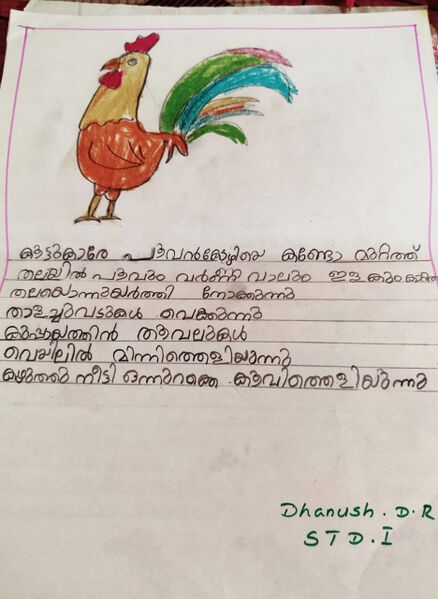 കൂട്ടുകാരേ പൂവൻകോഴിയെ കണ്ടോ മുറ്റത്ത്
തലയിൽ പൂവും വർണ്ണ വാലും ഇളകും
തലയൊന്നുയർത്തി നോക്കുന്നു
താളച്ചുവടുകൾ വെക്കുന്നു
തൂവലുകൾ
വെയിലിൽ മിന്നിത്തെളിയുന്നു
കഴുത്തു നീട്ടി ഒന്നുറക്കെ കൂവിത്തെളിയുന്നു
Dhanush . D . R
S T D . I